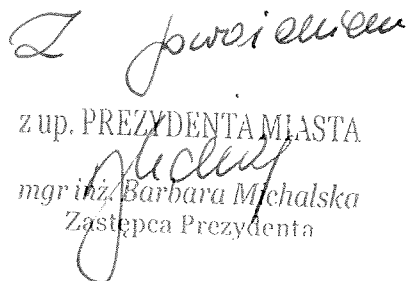 Z poważaniem
z up. PREZYDENTA MIASTA
mgr inż. Barbara Michalska
Zastępca Prezydenta